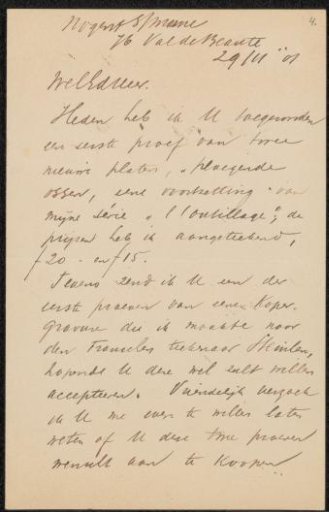 4.
Nogent S/Marne
76 Val de Beauté
29/11 '01
WelEdHeer.
Heden heb ik U toegezonden
een eerste proef van twee
nieuwe platen, "ploegende
ossen, eene voortzetting van
mijne série "l'outillage"; de
prijzen heb ik aangeteekend,
f20 - en f15.
Tevens zend ik U een der
eerste proeven van eener koper-
gravure die ik maakte naar
den Franschen teekenaar Steinlen,
hopende U deze wel zult willen
accepteeren. Vriendelijk verzoek
ik U me even te willen laten
weten of U deze twee proeven
wenscht aan te koopen